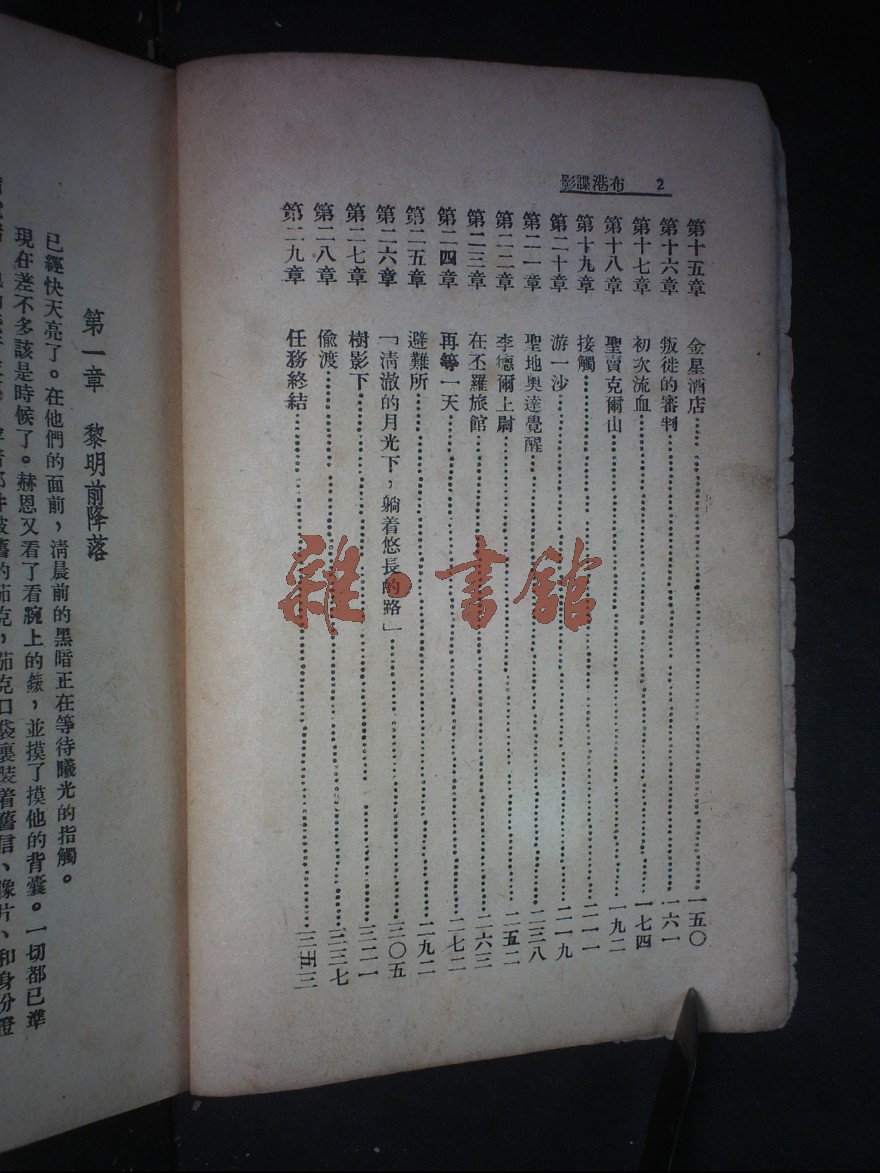 2　布港諜影
第十五章　金星酒店……一五〇
第十六章　叛徒的審判……一六一
第十七章　初次流血……一七四
第十八章　聖賣克爾山……一九二
第十九章　接觸……二一一
第二十章　游一沙……二一九
第二一章　聖地奧達覺醒……二三八
第二二章　李德爾上尉……二五二
第二三章　在丕羅旅館……二六三
第二四章　再等一天……二七二
第二五章　避難所……二九二
第二六章　「淸澈的月光下，躺着悠長的路」……三〇五
第二七章　樹影下……三二一
第二八章　偸渡……三三七
第二九章　任務終結……三五三
雜·書館
第一章　黎明前降落
已經快天亮了。在他們的面前，淸晨前的黑暗正在等待曦光的指觸。
現在差不多該是時候了。赫恩又看了看腕上的錶，並摸了摸他的背囊。一切都已準
破舊的茄克，茄克口袋裏裝着舊信、像片、和身份證